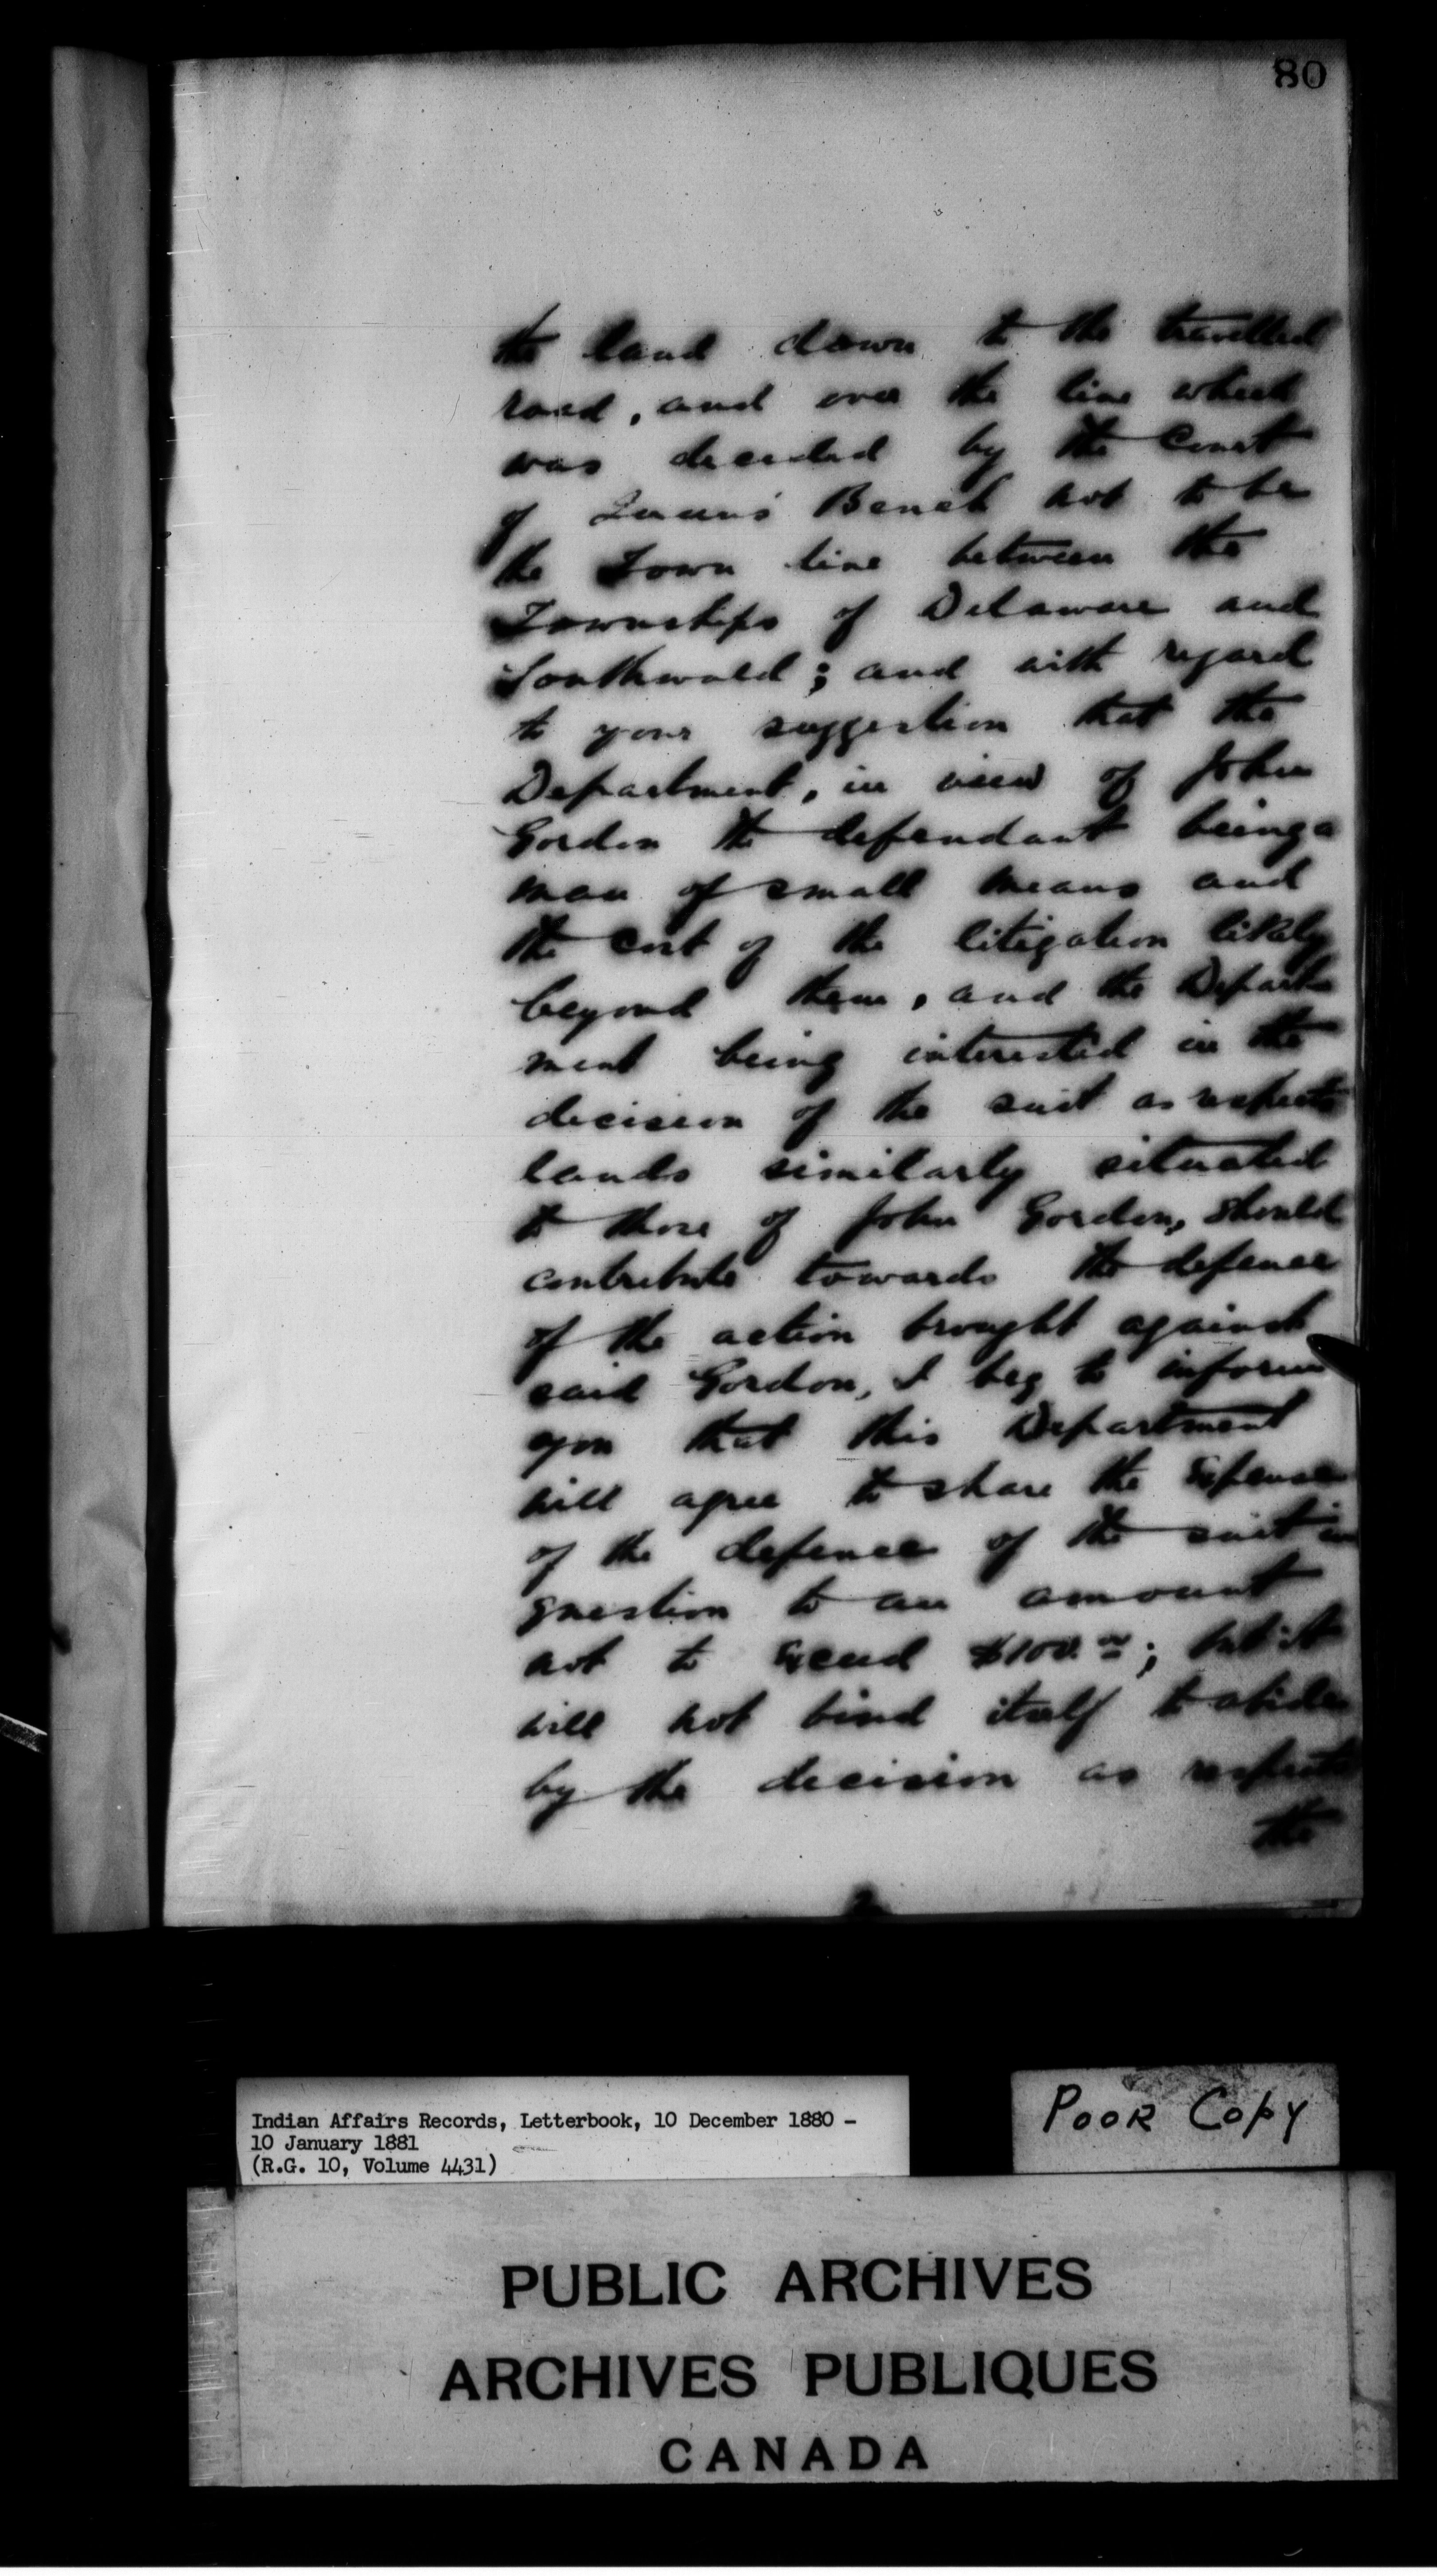 80
the land down to the travelled
road, and over the line which
was decided by the Court
of Queens' Bench not to be
the Town line between the
Townships of Delaware and
Southwold; and with regard
to your suggestion that the
Department, in view of John
Gordon the defendant being a
man of small means and
the cost of the litigation likely
beyond them, and the Depart-
ment being interested in the
decision of the suit as respects
lands similarly situated
to those of John Gordon, should
contribute towards the defence
of the action brought against
said Gordon, I beg to inform
you that this Department
will agree to share the expense
of the defence of the suit in
question to an amount
not to exceed $100.00; but it
will not bind itself to abide
by the decision as respects
the
Indian Affairs Records, Letterbook, 10 December 1880 -
10 January 1881
(R.G. 10, Volume 4431)
POOR COPY
PUBLIC ARCHIVES
ARCHIVES PUBLIQUES
CANADA